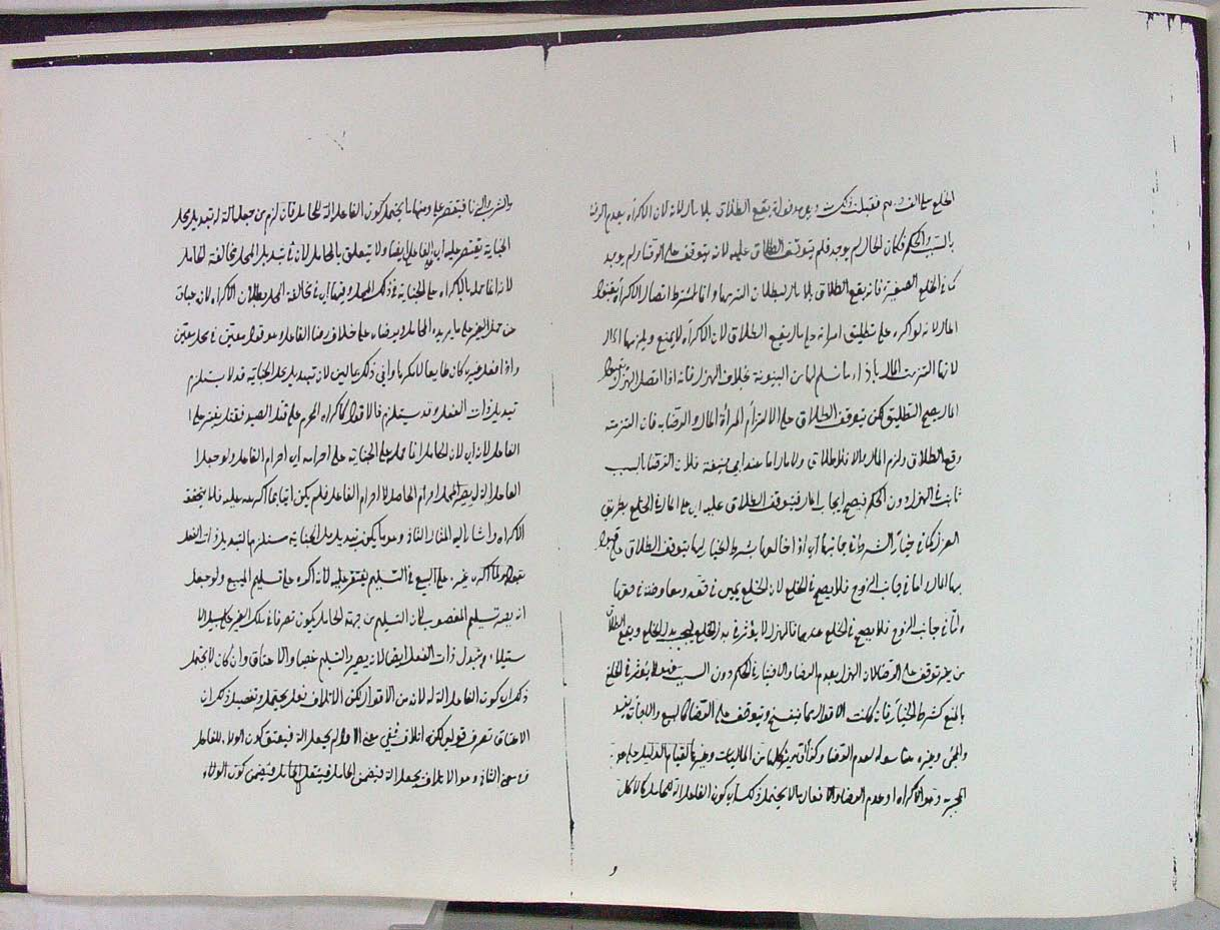 الخلع على الف درهم فقبلت ذلك وقد دخل بها يقع الطلاق بلا مال لان الاكراه يعدم الرضا
بالسبب والحكم فكان المال لم يوجد فلم يتوقف الطلاق عليه لانه يتوقف على الرضا ولم يوجد
كما في خلع الصغيرة فانه يقع الطلاق بلا مال لبطلان التزامها وانما اشترط اتصال الاكراه بقبول
المال لانه لو اكره على تطليق امرأته على مال يقع الطلاق لان الاكراه لا يمنع ويلزمها المال
لانها التزمت المال بازاء ما سلم لها من البينونة بخلاف الهزل فانه اذا اتصل الهزل بقبول
المال يصح التطليق لكن يتوقف الطلاق على الالتزام المرأة المال والرضا به فان التزمته
وقع الطلاق ولزم المال والا فلا طلاق ولا مال اما عند ابي حنيفة فلان الرضا بالسبب
ثابت في الهزل دون الحكم فيصح ايجاب المال فيتوقف الطلاق عليه اي على المال في الخلع بطريق
الهزل كما في خيار الشرط في جانبها اي اذا خالعها بشرط الخيار لها يتوقف الطلاق على قبولها
بها المال واما في جانب الزوج فلا يصح في الخلع لان الخلع يمين في حقه ومعاوضة في حقها
واما في جانب الزوج فلا يصح في الخلع عندهما فالهزل لا يؤثر في بدل الخلع فيجب بدل الخلع ويقع الطلاق
من غير توقف على الرضا لان الهزل يعدم الرضا والاختيار في الحكم دون السبب فلا يؤثر في الخلع
بالمنع كشرط الخيار فان كانت الاقوال مما ينفسخ ويتوقف على الرضا كالبيع والاجارة يفسد
والملجئ وغيره هنا سواء لعدم الرضا وكذا الاقارير كلها من الماليات وغيرها لقيام الدليل على عدم
المخبر به وهو الاكراه او عدم الرضا والافعال ما لا يحتمل ذلك اي كون الفاعل آلة للحامل كالاكل
والشرب والزنا فيقتصر عليه ومنها ما يحتمل كون الفاعل آلة للحامل فان لزم من جعله آلة له تبديل محل
الجناية يقتصر عليه اي على الفاعل ايضا ولا يتعلق بالحامل لان في تبديل المحل مخالفة للحامل
لانه انما حمله بالاكراه على الجناية في ذلك المحل وفيها اي في مخالفة الحامل بطلان الاكراه لانه عبارة
عن حمل الغير على ما يريده الحامل ويرضاه على خلاف رضا الفاعل وهو فعل معين في محل معين
واذا فعل غيره كان طايعا لا مكرها وفي ذلك مثالين لان تبديل محل الجناية قد لا يستلزم
تبديل ذات الفعل وقد يستلزم فالاول كاكراه المحرم على قتل الصيد فقتل يقتصر على
الفاعل لانه اي لان الحامل انما حمله على الجناية على احرامه اي احرام الفاعل ولو جعل
الفاعل آلة له يصير المحل احرام الحامل لا احرام الفاعل فلم يكن اتيا بما اكره عليه فلا يتحقق
الاكراه واشار الى المثال الثاني وهو ما يكون تبديل محل الجناية مستلزما لتبديل ذات الفعل
بقوله وكما اكره غيره على البيع والتسليم يقتصر عليه لانه اكره على تسليم المبيع ولو جعل
آلة يصير تسليم المغصوب لان التسليم من جهة الحامل يكون تصرفا في ملك الغير على سبيل الا
ستيلاء وتبدل ذات الفعل ايضا لانه يصير التسليم غصبا والاعتاق وان كان لا يحتمل
ذلك اي كون الفاعل آلة له لانه من الاقوال لكن الاتلاف فعل يحتمله وتفصيل ذلك ان
الاعتاق تصرف قولي لكنه اتلاف ففي معنى الاول لم يجعل آلة فيعتق كون الولاء للفاعل
وفي معنى الثاني وهو الاتلاف يجعل آلة فيضمن الحامل فينتقل الى الحامل فيضمن كون الولاء
و